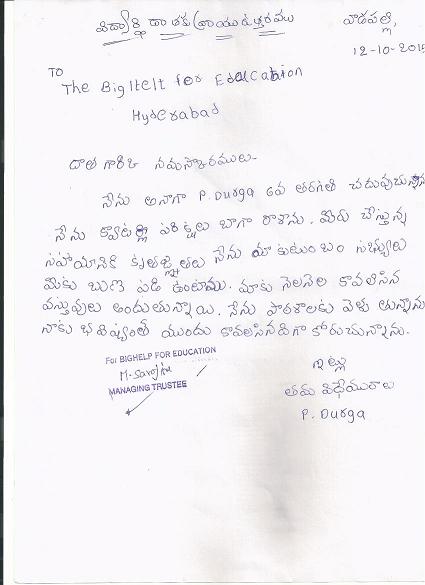 విద్యార్థి దాతకు వ్రాయు ఉత్తరము
వాడపల్లి,
12-10-2015
TO
The BigHelt for Education
Hyderabad
దాత గారికి నమస్కారములు-
నేను అనగా P. Durga 6వ తరగతి చదువుచున్నాను
నేను క్వాటర్లీ పరీక్షలు బాగా రాశాను. మీరు చేస్తున్న
సహాయానికి కృతజ్ఞతలు నేను మా కుటుంబం సభ్యులు
మీకు ఋణ పడి ఉంటాము. మాకు నెలనెల కావలసిన
వస్తువులు అందుతున్నాయి. నేను పాఠశాలకు వెళు తున్నాను
నాకు భవిష్యంతే ముందు కావలసినదిగా కోరుచున్నాను.
For BIGHELP FOR EDUCATION
M. Sarojini
MANAGING TRUSTEE
ఇట్లు
తమ విధేయురాలు
P. Durga